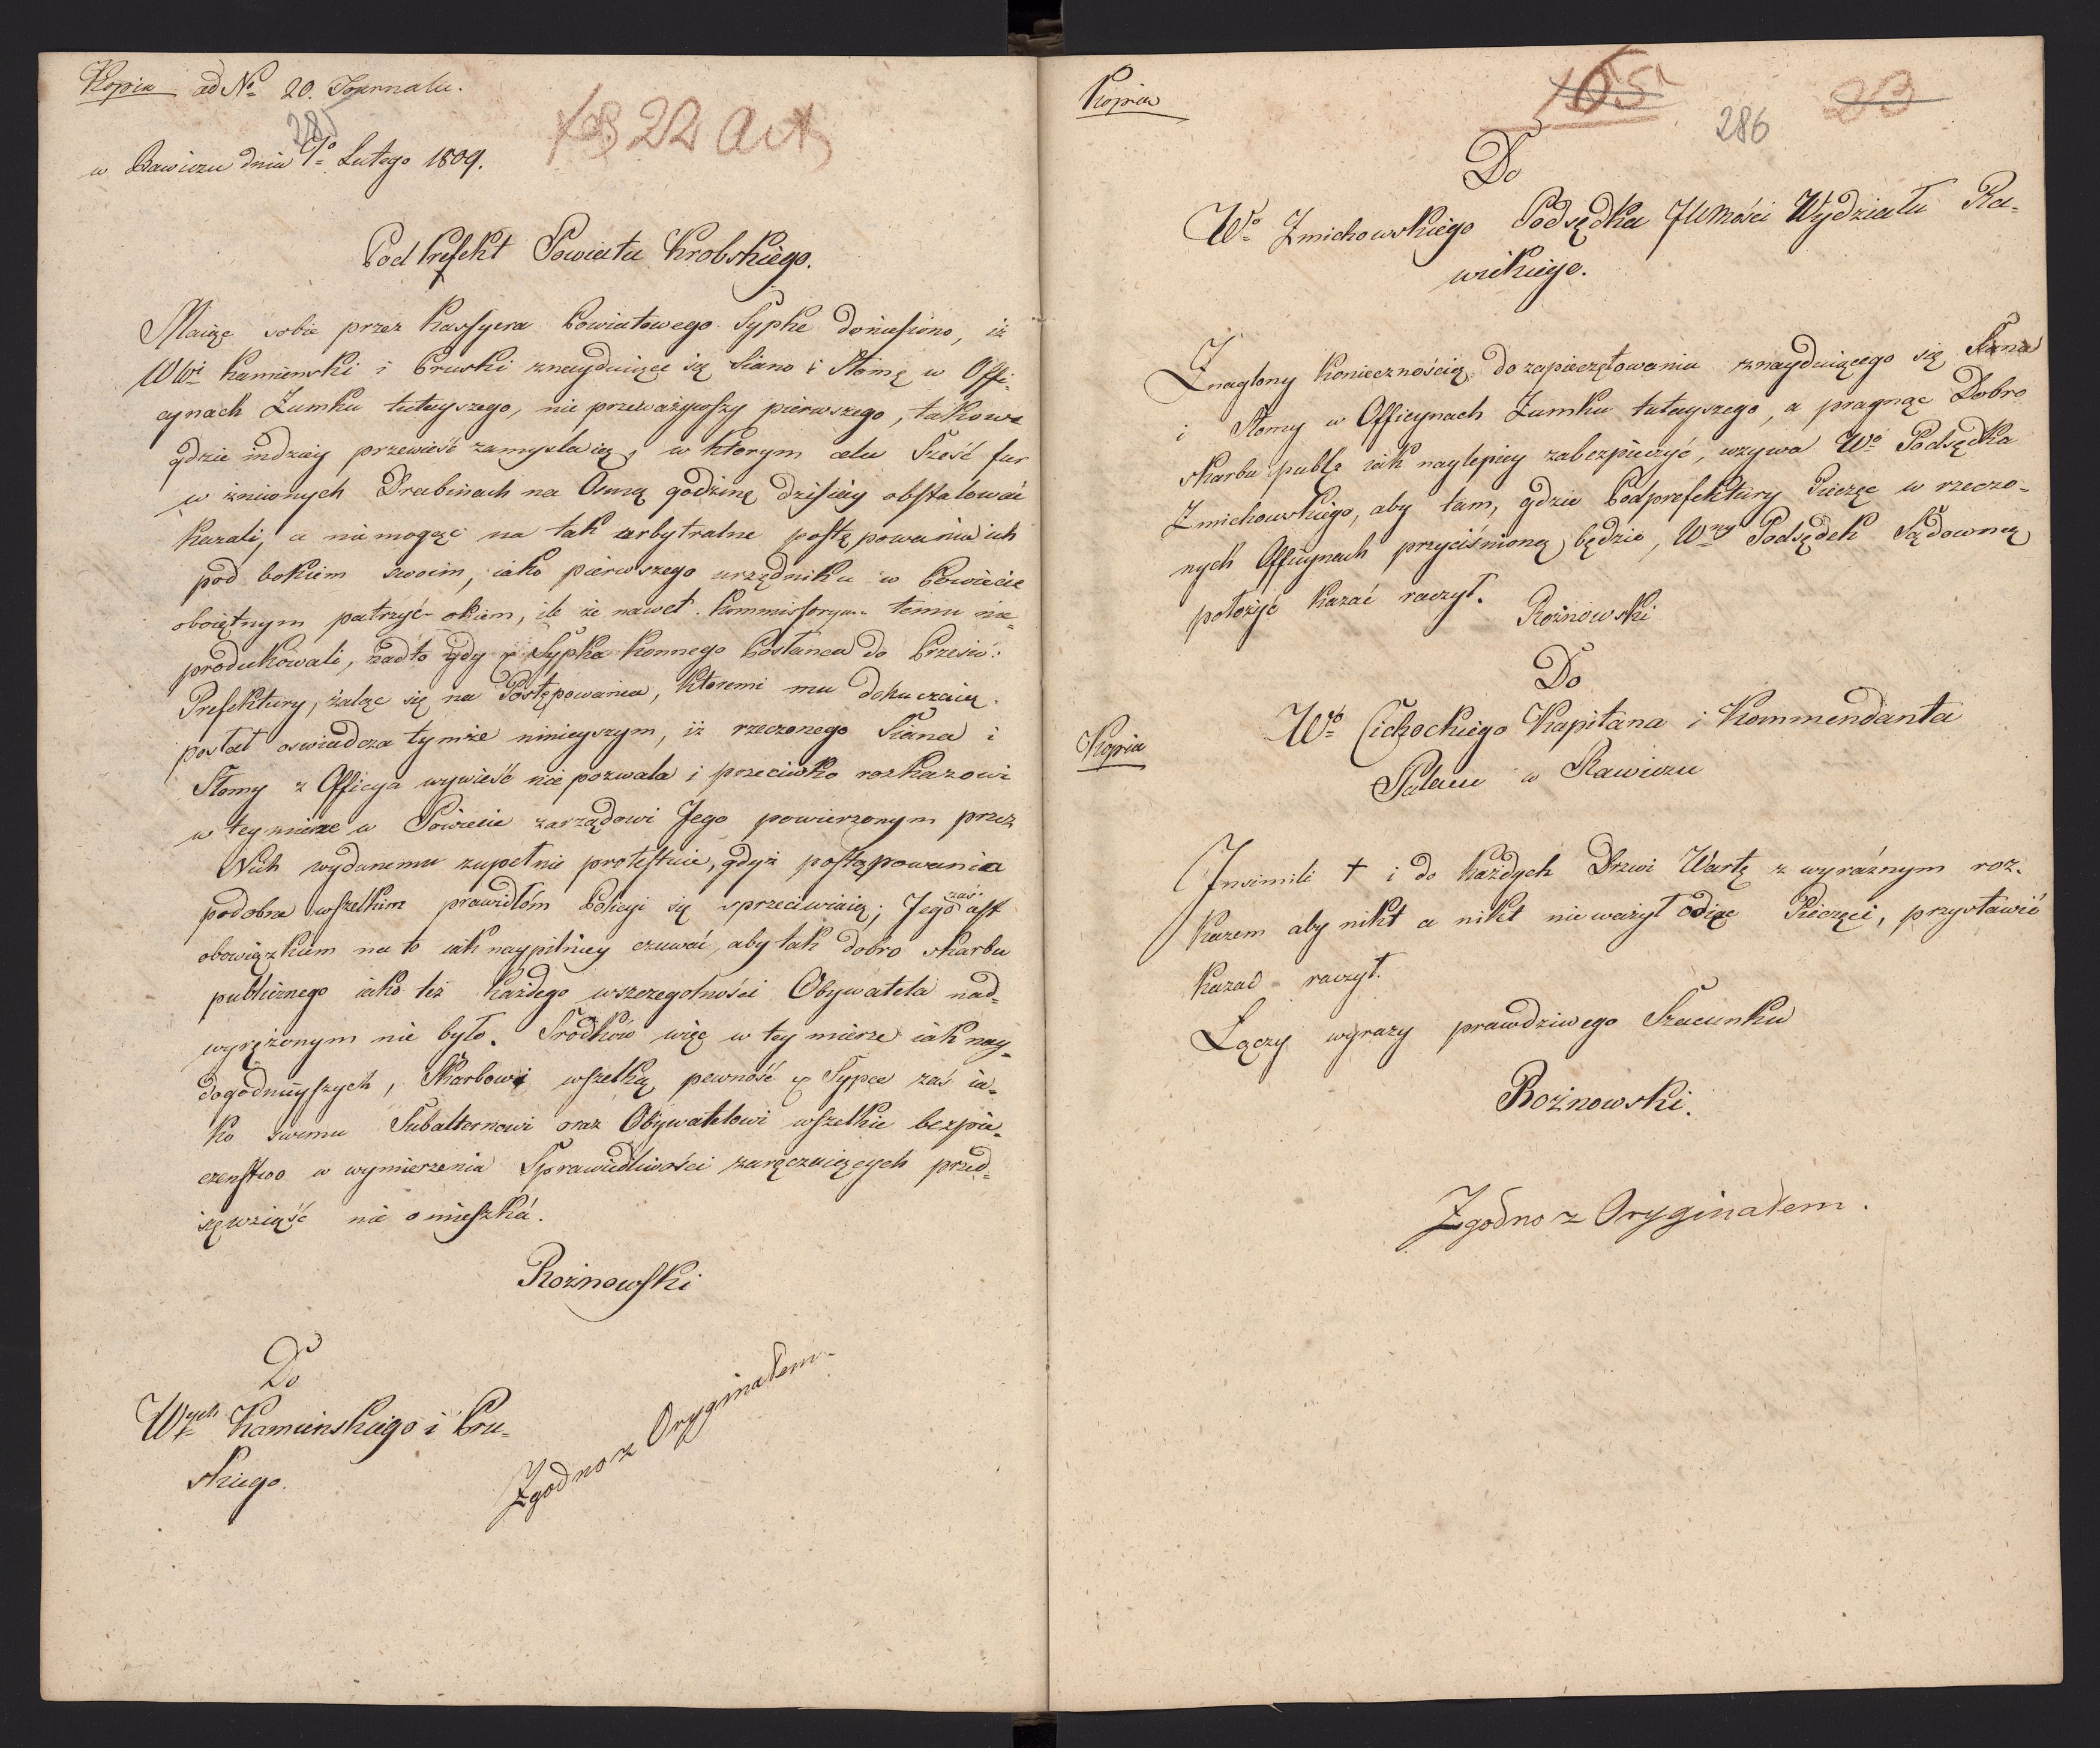 Kopia ad No 20. Journalu.
285
w Rawiczu dnia 7o Lutego 1809.
22 Act
Pod Prefekt Powiatu Krobskiego.
Maiąc sobie przez Kassyera Powiatowego Sypke doniesiono, iż
WWi Kamienski i Pruski znayduiące się Siano i Słomę w Offi-
cynach Zamku tuteyszego, nie przeważywszy pierwszego, takowe
gdzie indziey przewieść zamyslaią, w ktorym celu Sześć fur
w żnionych Drabinach na Osmą godzinę dzisiey obstalować
kazali, a nie mogąc na tak arbytralne postępowania ich
pod bokiem swoim, iako pierwszego urzędnika w Powiecie
oboiętnym patrzyć okiem, ile że nawet Kommissoryum temu nie-
produkowali, nadto gdy Sypka konnego Posłańca do Prześw:
Prefektury, żaląc się na Postępowania, ktoremi mu dokuczaią
posłał oswiadcza tymże ninieyszym, iż rzeczonego Siana i
Słomy z Officyn wywieść nie pozwala i przeciwko rozkazowi
w tey mierze w Powiecie zarządowi Jego powierzonym przez
Nich wydanemu zupełnie protestuie, gdyż postępowania
podobne wszelkim prawidłóm Policyi się sprzeciwiaią; Jego zaś est
obowiązkiem na to iak naypilniey czuwać, aby tak dobro skarbu
publicznego iako też każdego wszczegolności Obywatela nad-
wyrężonym nie było. Srodków więc w tey mierze iak nay-
dogodnieyszych, Skarbowi wszelką pewność Sypce zaś ia-
ko swemu Subalternowi oraz Obywatelowi wszelkie bezpie-
czenstwo w wymierzenia Sprawiedliwości zaręczaiących przed-
sięwziąść nie omieszká.
Rożnowski
Do
Wych Kamienskiego i Pru-
skiego.
Zgodno z Oryginałem.
Kopia
165
286
23
Do
Wo Zmichowskiego Podsędka Wydziału Ra-
wickiego.
Znaglony koniecznością do zapieczętowania znayduiącego się Siana
i Słomy w Officynach Zamku tuteyszego, a pragnąc Dobro
skarbu publo iak naylepiey zabezpieczyć, wzywa Wo Podsędka
Zmichowskiego, aby tam, gdzie Podprefektury Pieczęc w rzeczo-
nych Officynach przyciśnioną będzie, Wny Podsędek Sądowną
położyć kazać raczył.
Rożnowski
Do
Kopia
Wo Cichockiego Kapitana i Kommendanta
Placu w Rawiczu
Insimili + i do każdych Drzwi Wartę z wyraźnym roz-
kazem aby nikt a nikt nie ważył odiąc Pieczęci, przystawić
kazać raczył.
Łączy wyrazy prawdziwego Szacunku
Rożnowski.
Zgodno z Oryginałem.